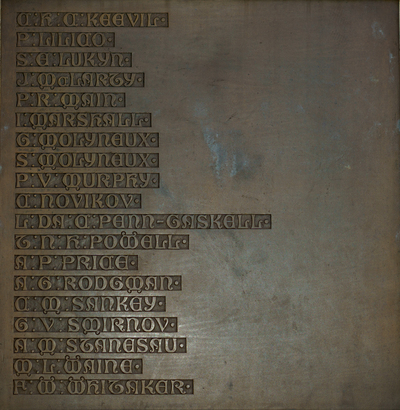 KEEVIL
P LILICO
S E LUKYN
J McLARTY
P R MAIN
I MARSHALL
G MOLYNEUX
S MOLYNEUX
P V MURPHY
NOVIKOV
L DA C PENN-GASKELL
POWELL
A P PRICE
A G RODGMAN
C M SANKEY
G V SMIRNOV
A M STANESAU
M L WAINE
F W WHITAKER